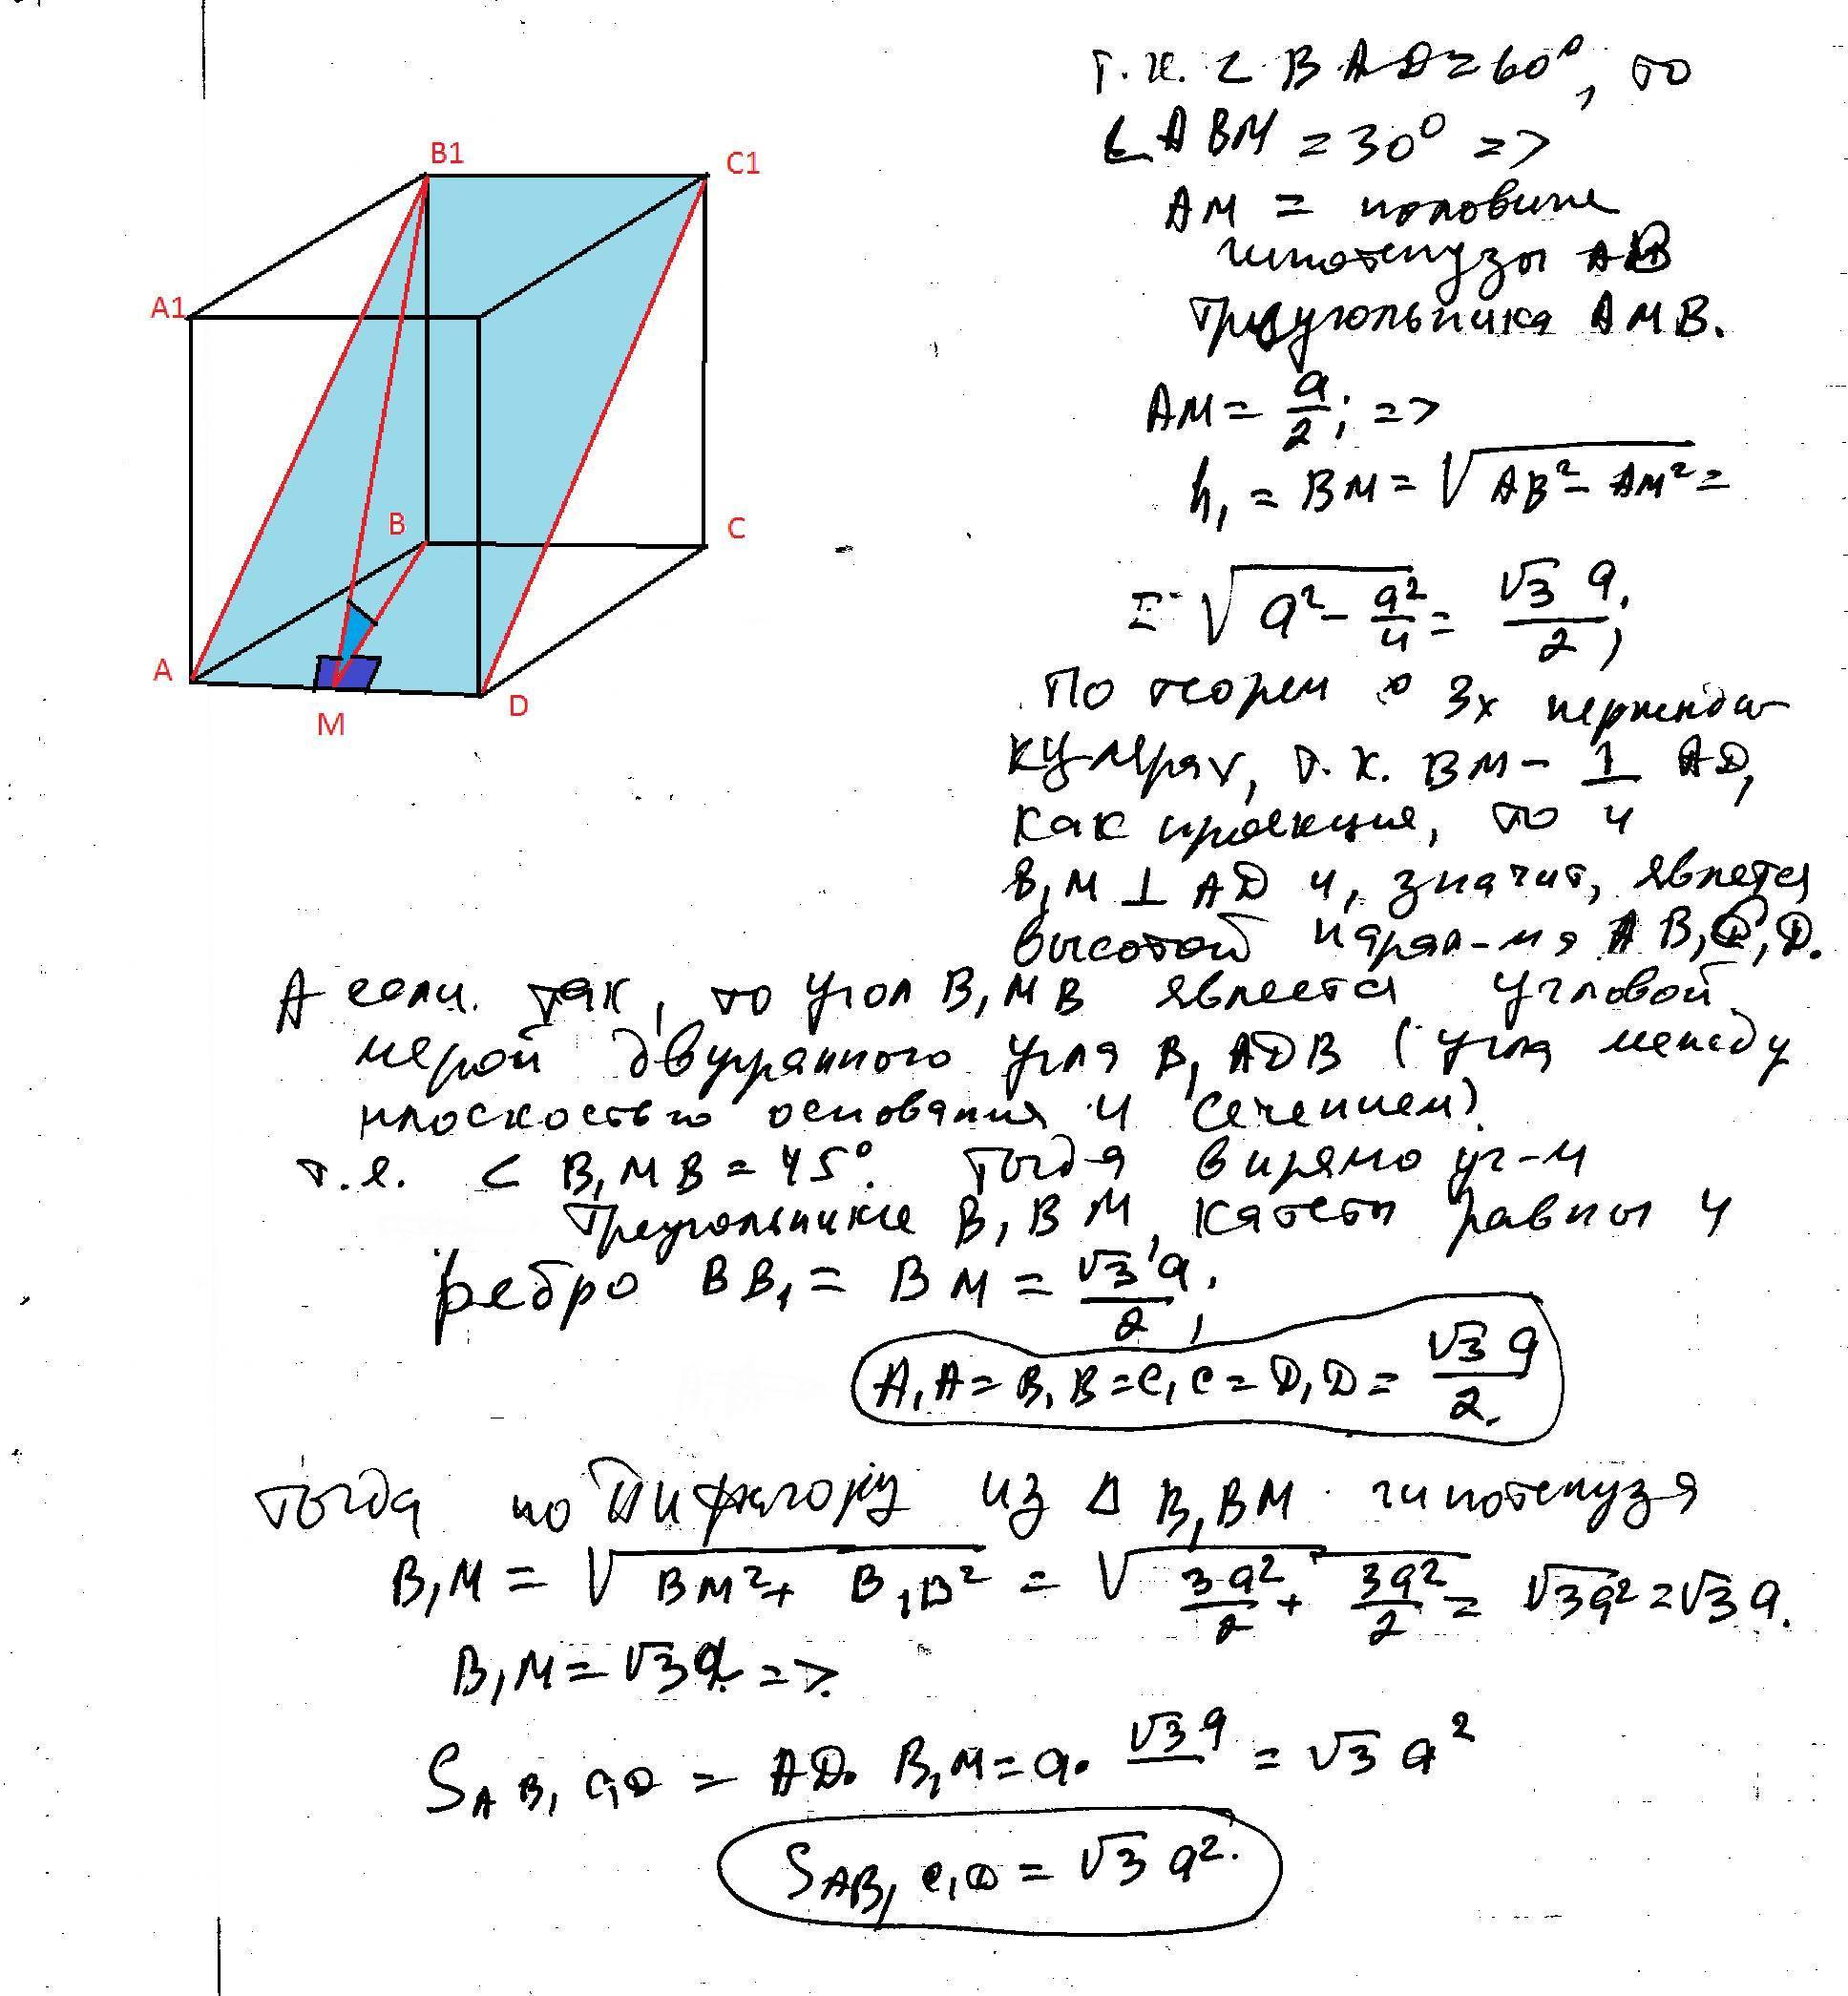 B1
C1
A1
B
C
A
M
D
т.к. ∠ BAD = 60°, то
∠ ABM = 30° =>
AM = половине
гипотенузы AB
треугольника AMB.
AM = a/2; =>
h₁ = BM = √(AB² - AM²) =
= √(a² - a²/4) = √3 a/2;
По теорем о 3х перпенди
кулярах, т.к. BM - ⊥ AD,
как проекция, то и
B₁M ⊥ AD и, значит, является
высотой парал-ма AB₁C₁D.
А если так, то угол B₁MB является угловой
мерой двугранного угла B₁ADB (угла между
плоскостью основания и сечением).
т.е. < B₁MB = 45°. Тогда в прямоуг-м
треугольнике B₁BM катеты равны и
ребро BB₁ = BM = √3 a/2;
A₁A = B₁B = C₁C = D₁D = √3 a/2.
Тогда по Пифагору из Δ B₁BM гипотенуза
B₁M = √(BM² + B₁B²) = √(3a²/2 + 3a²/2) = √3a² = √3 a.
B₁M = √3 a =>.
S AB₁C₁D = AD · B₁M = a · √3 a = √3 a²
S AB₁C₁D = √3 a².